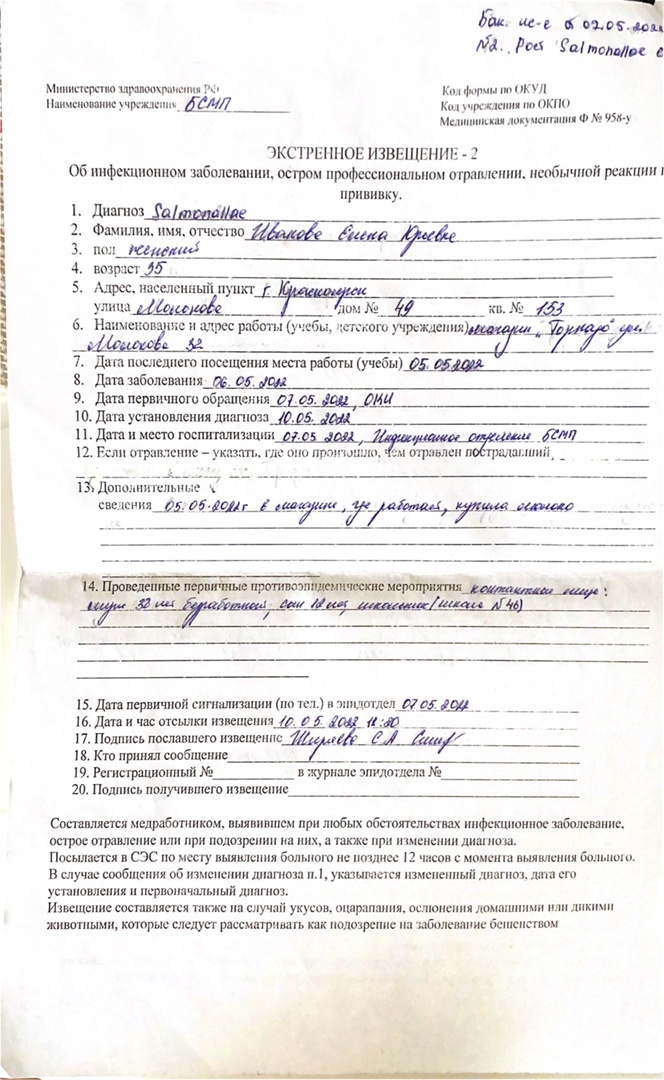 Бак. ис-е от 07.05.2022
№2. Рост Salmonallae
Министерство здравоохранения РФ
Наименование учреждения БСМП
Код формы по ОКУД
Код учреждения по ОКПО
Медицинская документация Ф № 958-у
ЭКСТРЕННОЕ ИЗВЕЩЕНИЕ - 2
Об инфекционном заболевании, остром профессиональном отравлении, необычной реакции
прививку.
1. Диагноз Salmonallae
2. Фамилия, имя, отчество Иванова Елена Юрьевна
3. пол женский
4. возраст 35
5. Адрес, населенный пункт г. Красноярск
улица Молокова дом № 49 кв. № 153
6. Наименование и адрес работы (учебы, детского учреждения) магазин "Торнадо"
Молокова 32
7. Дата последнего посещения места работы (учебы) 05.05.2022
8. Дата заболевания 06.05.2022
9. Дата первичного обращения 07.05.2022, ОКИ
10. Дата установления диагноза 10.05.2022
11. Дата и место госпитализации 07.05.2022, Инфекционное отделение БСМП
12. Если отравление – указать, где оно произошло, чем отравлен пострадавший
13. Дополнительные
сведения 05.05.2022г в магазине, где работает, купила молоко
14. Проведенные первичные противоэпидемические мероприятия контактные лица:
муж 32 лет безработный, сын 12 лет, школьник (школа №46)
15. Дата первичной сигнализации (по тел.) в эпидотдел 07.05.2022
16. Дата и час отсылки извещения 10.05.2022 12:20
17. Подпись пославшего извещение Ширяева С А
18. Кто принял сообщение
19. Регистрационный № в журнале эпидотдела №
20. Подпись получившего извещение
Составляется медработником, выявившем при любых обстоятельствах инфекционное заболевание,
острое отравление или при подозрении на них, а также при изменении диагноза.
Посылается в СЭС по месту выявления больного не позднее 12 часов с момента выявления больного.
В случае сообщения об изменении диагноза п.1, указывается измененный диагноз, дата его
установления и первоначальный диагноз.
Извещение составляется также на случай укусов, оцарапания, ослюнения домашними или дикими
животными, которые следует рассматривать как подозрение на заболевание бешенством